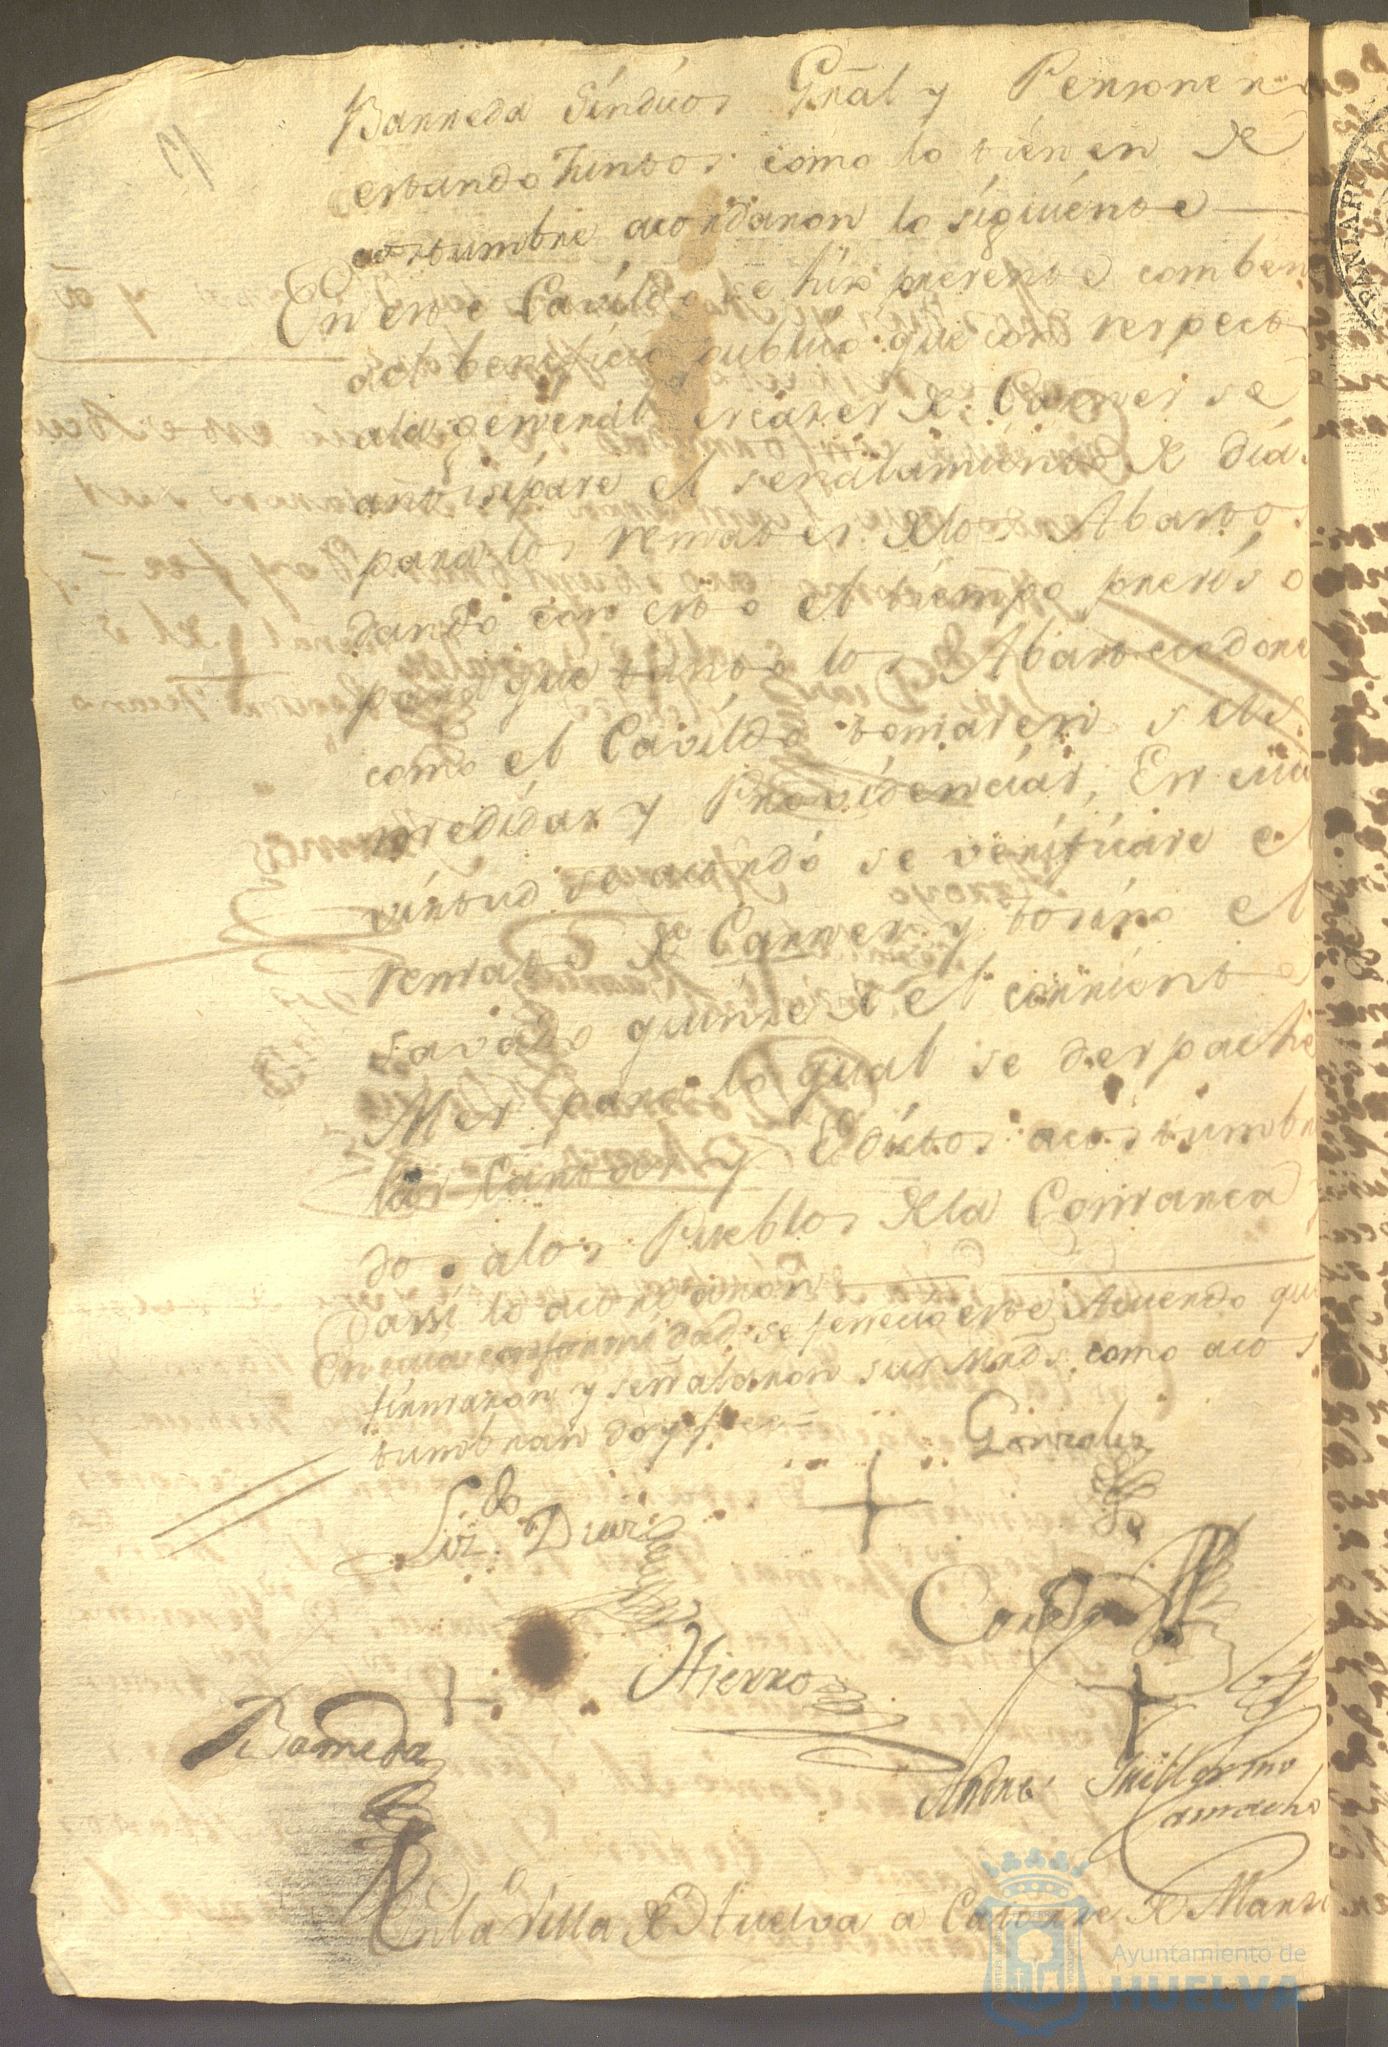 Barreda Síndicos Gral y Personero
estando Juntos como lo tienen de
costumbre acordaron lo siguiente
En este Cavildo se hizo presente comben
al beneficio publico que con respecto
ala general escases de Carnes se
antisipase el señalamiento de dia
para los remates delos Abastos
dando con esto el tiempo presiso
para que tanto los Abastecedores
como el Cavildo tomasen sus
medidas y Providencias, En cuia
virtud se acordó se verificase el
remate de Carnes y tosino el
savado quinse del corriente
Mes para lo qual se despache
las Cartas y Edictos acostumbra
dos alos Pueblos dela Comarca
y assi lo acordaron
En cuia conformidad se fenecio este Acuerdo que
firmaron y señalaron sus Mrds como acos
tumbran doy fee=
Gonzales
Lizdo Dias
Hierro
Barreda
Andres Guillermo
Camacho
En la Villa de Huelva a Catorse de Marzo
Ayuntamiento de
HUELVA